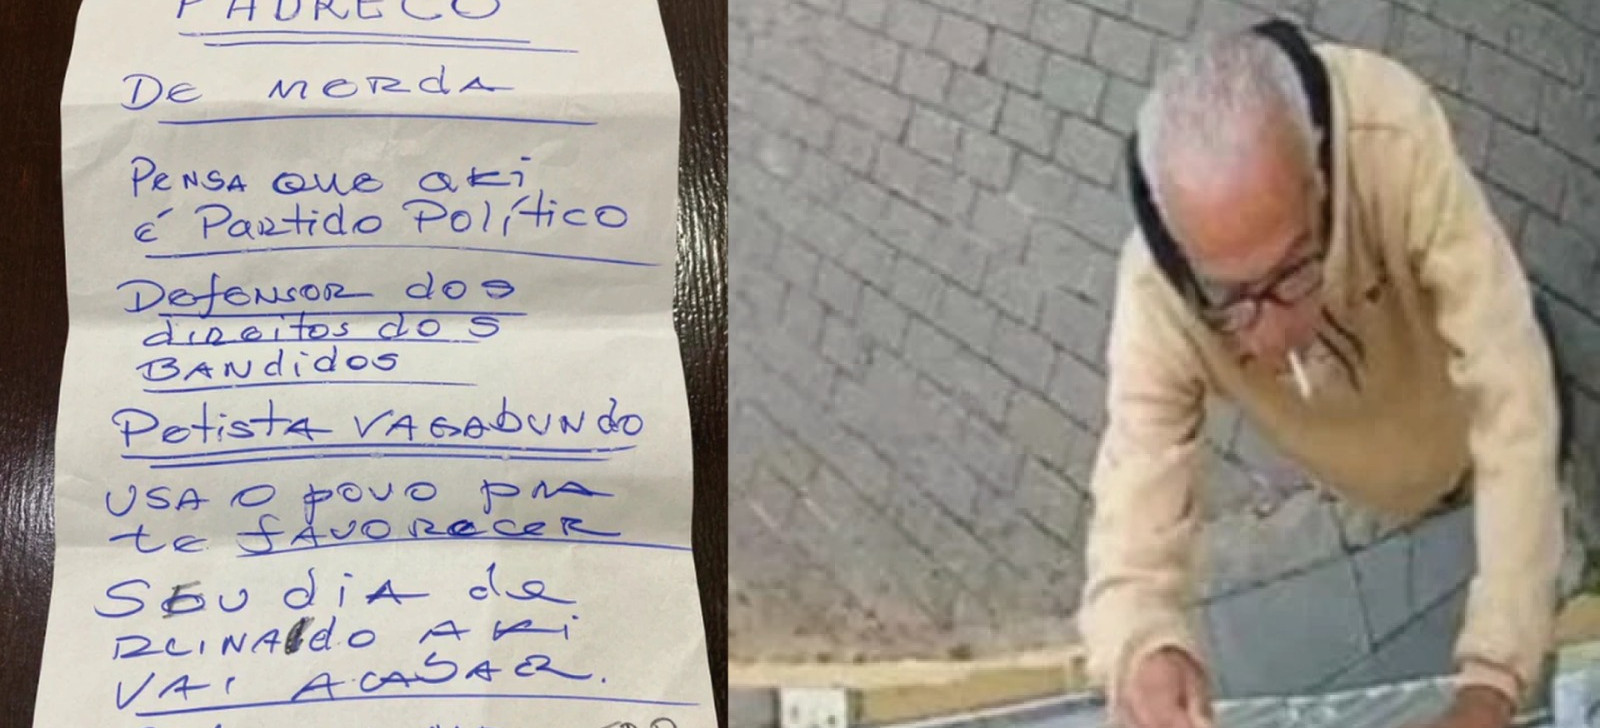 PADRECO
DE MERDA
PENSA QUE AKI
É PARTIDO POLÍTICO
DEFENSOR DOS
DIREITOS DOS
BANDIDOS
PETISTA VAGABUNDO
USA O POVO PRA
TE FAVORECER
SEU DIA DE
REINADO AKI
VAI ACABAR.